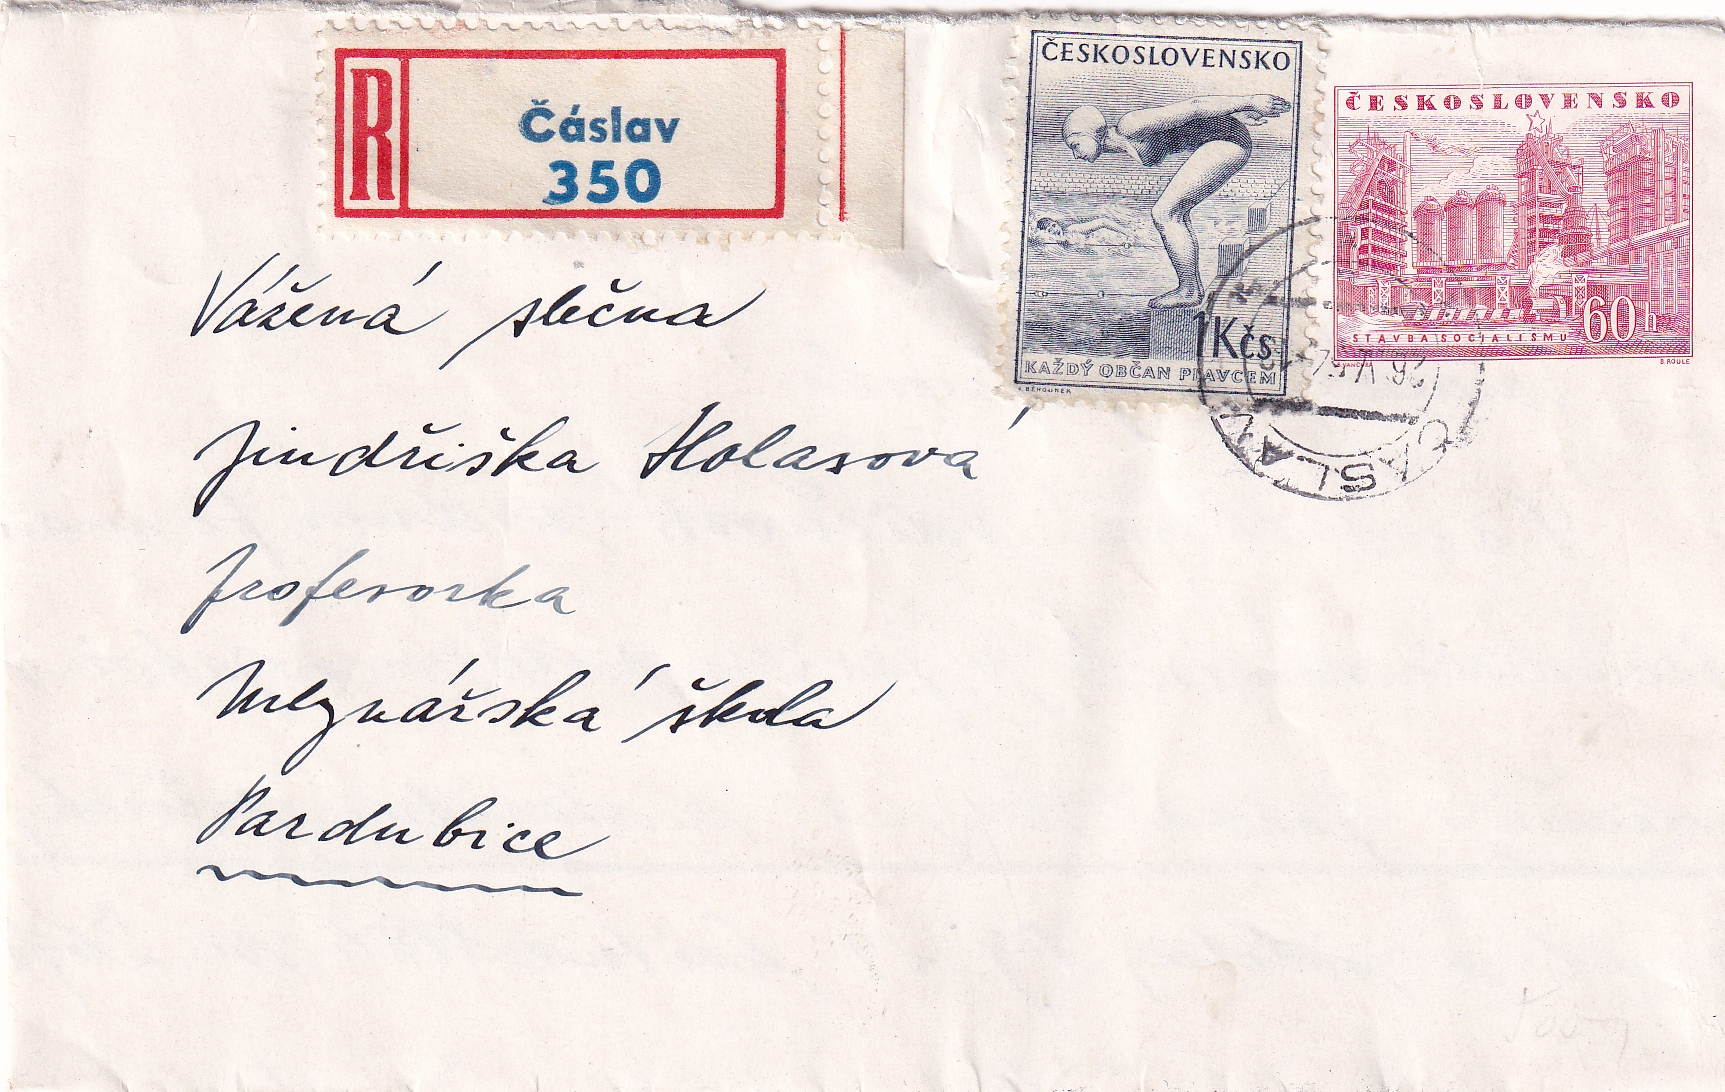 R
Čáslav
350
ČESKOSLOVENSKO
1 Kčs
KAŽDÝ OBČAN PLAVCEM
ČESKOSLOVENSKO
60 h
STAVBA SOCIALISMU
B. ROULE
ČÁSLAV
Vážená slečna
Jindřiška Holasová
profesorka
Mlynářská škola
Pardubice